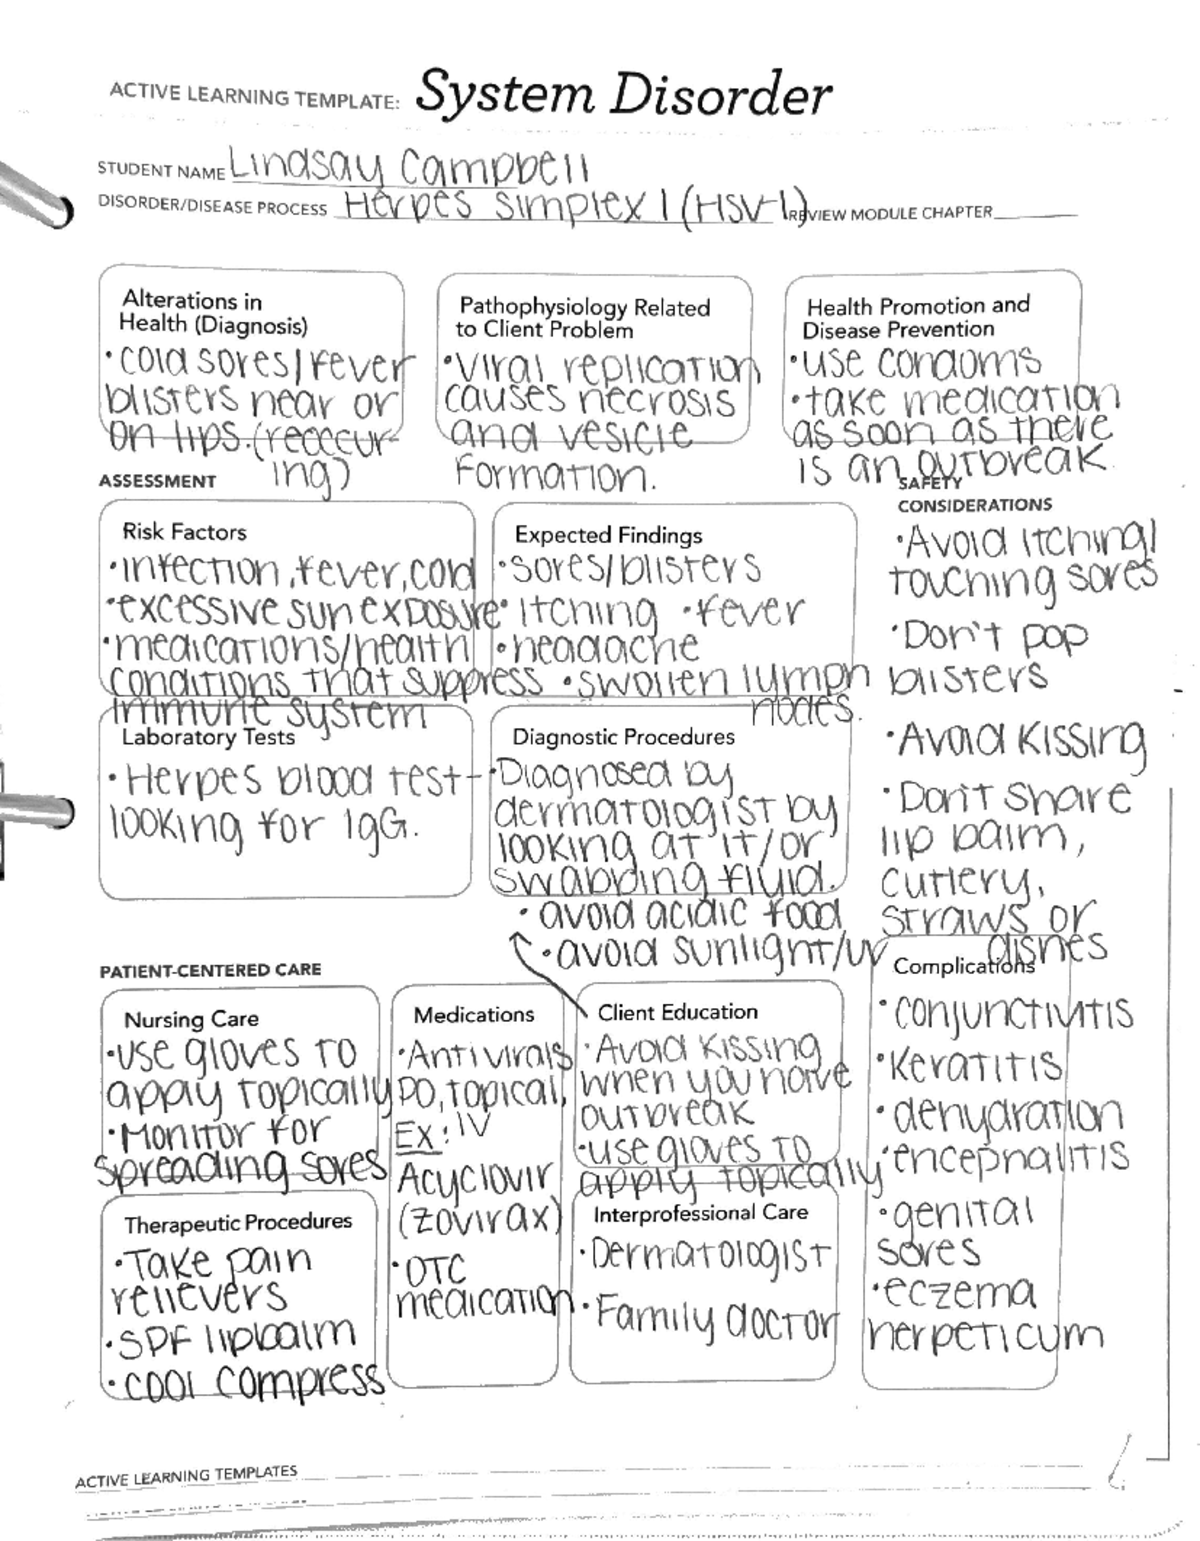 ACTIVE LEARNING TEMPLATE: System Disorder
STUDENT NAME Lindsay Campbell
DISORDER/DISEASE PROCESS Herpes simplex 1 (HSV-1) REVIEW MODULE CHAPTER
Alterations in
Health (Diagnosis)
• cold sores/fever
blisters near or
on lips. (reoccur-
ing)
Pathophysiology Related
to Client Problem
• Viral replication
causes necrosis
and vesicle
formation.
Health Promotion and
Disease Prevention
• use condoms
• take medication
as soon as there
is an outbreak.
ASSESSMENT
SAFETY
CONSIDERATIONS
• Avoid itching/
touching sores
• Don't pop
blisters
• Avoid kissing
• Don't share
lip balm,
cutlery,
straws or
dishes
Risk Factors
• infection, fever, cold
• excessive sun exposure
• medications/health
conditions that suppress
immune system
Expected Findings
• sores/blisters
• itching • fever
• headache
• swollen lymph
nodes.
Laboratory Tests
• Herpes blood test -
looking for IgG.
Diagnostic Procedures
• Diagnosed by
dermatologist by
looking at it/or
swabbing fluid.
• avoid acidic food
• avoid sunlight/UV
PATIENT-CENTERED CARE
Nursing Care
• use gloves to
appay topically
• Monitor for
spreading sores
Medications
• Antivirals
PO, topical,
Ex: IV
Acyclovir
(Zovirax)
• OTC
medication
Client Education
• Avoid kissing
when you have
outbreak
• use gloves to
apply topically
Therapeutic Procedures
• Take pain
relievers
• SPF lipbalm
• cool compress
Interprofessional Care
• Dermatologist
• Family doctor
Complications
• conjunctivitis
• Keratitis
• dehydration
• encephalitis
• genital
sores
• eczema
herpeticum
ACTIVE LEARNING TEMPLATES